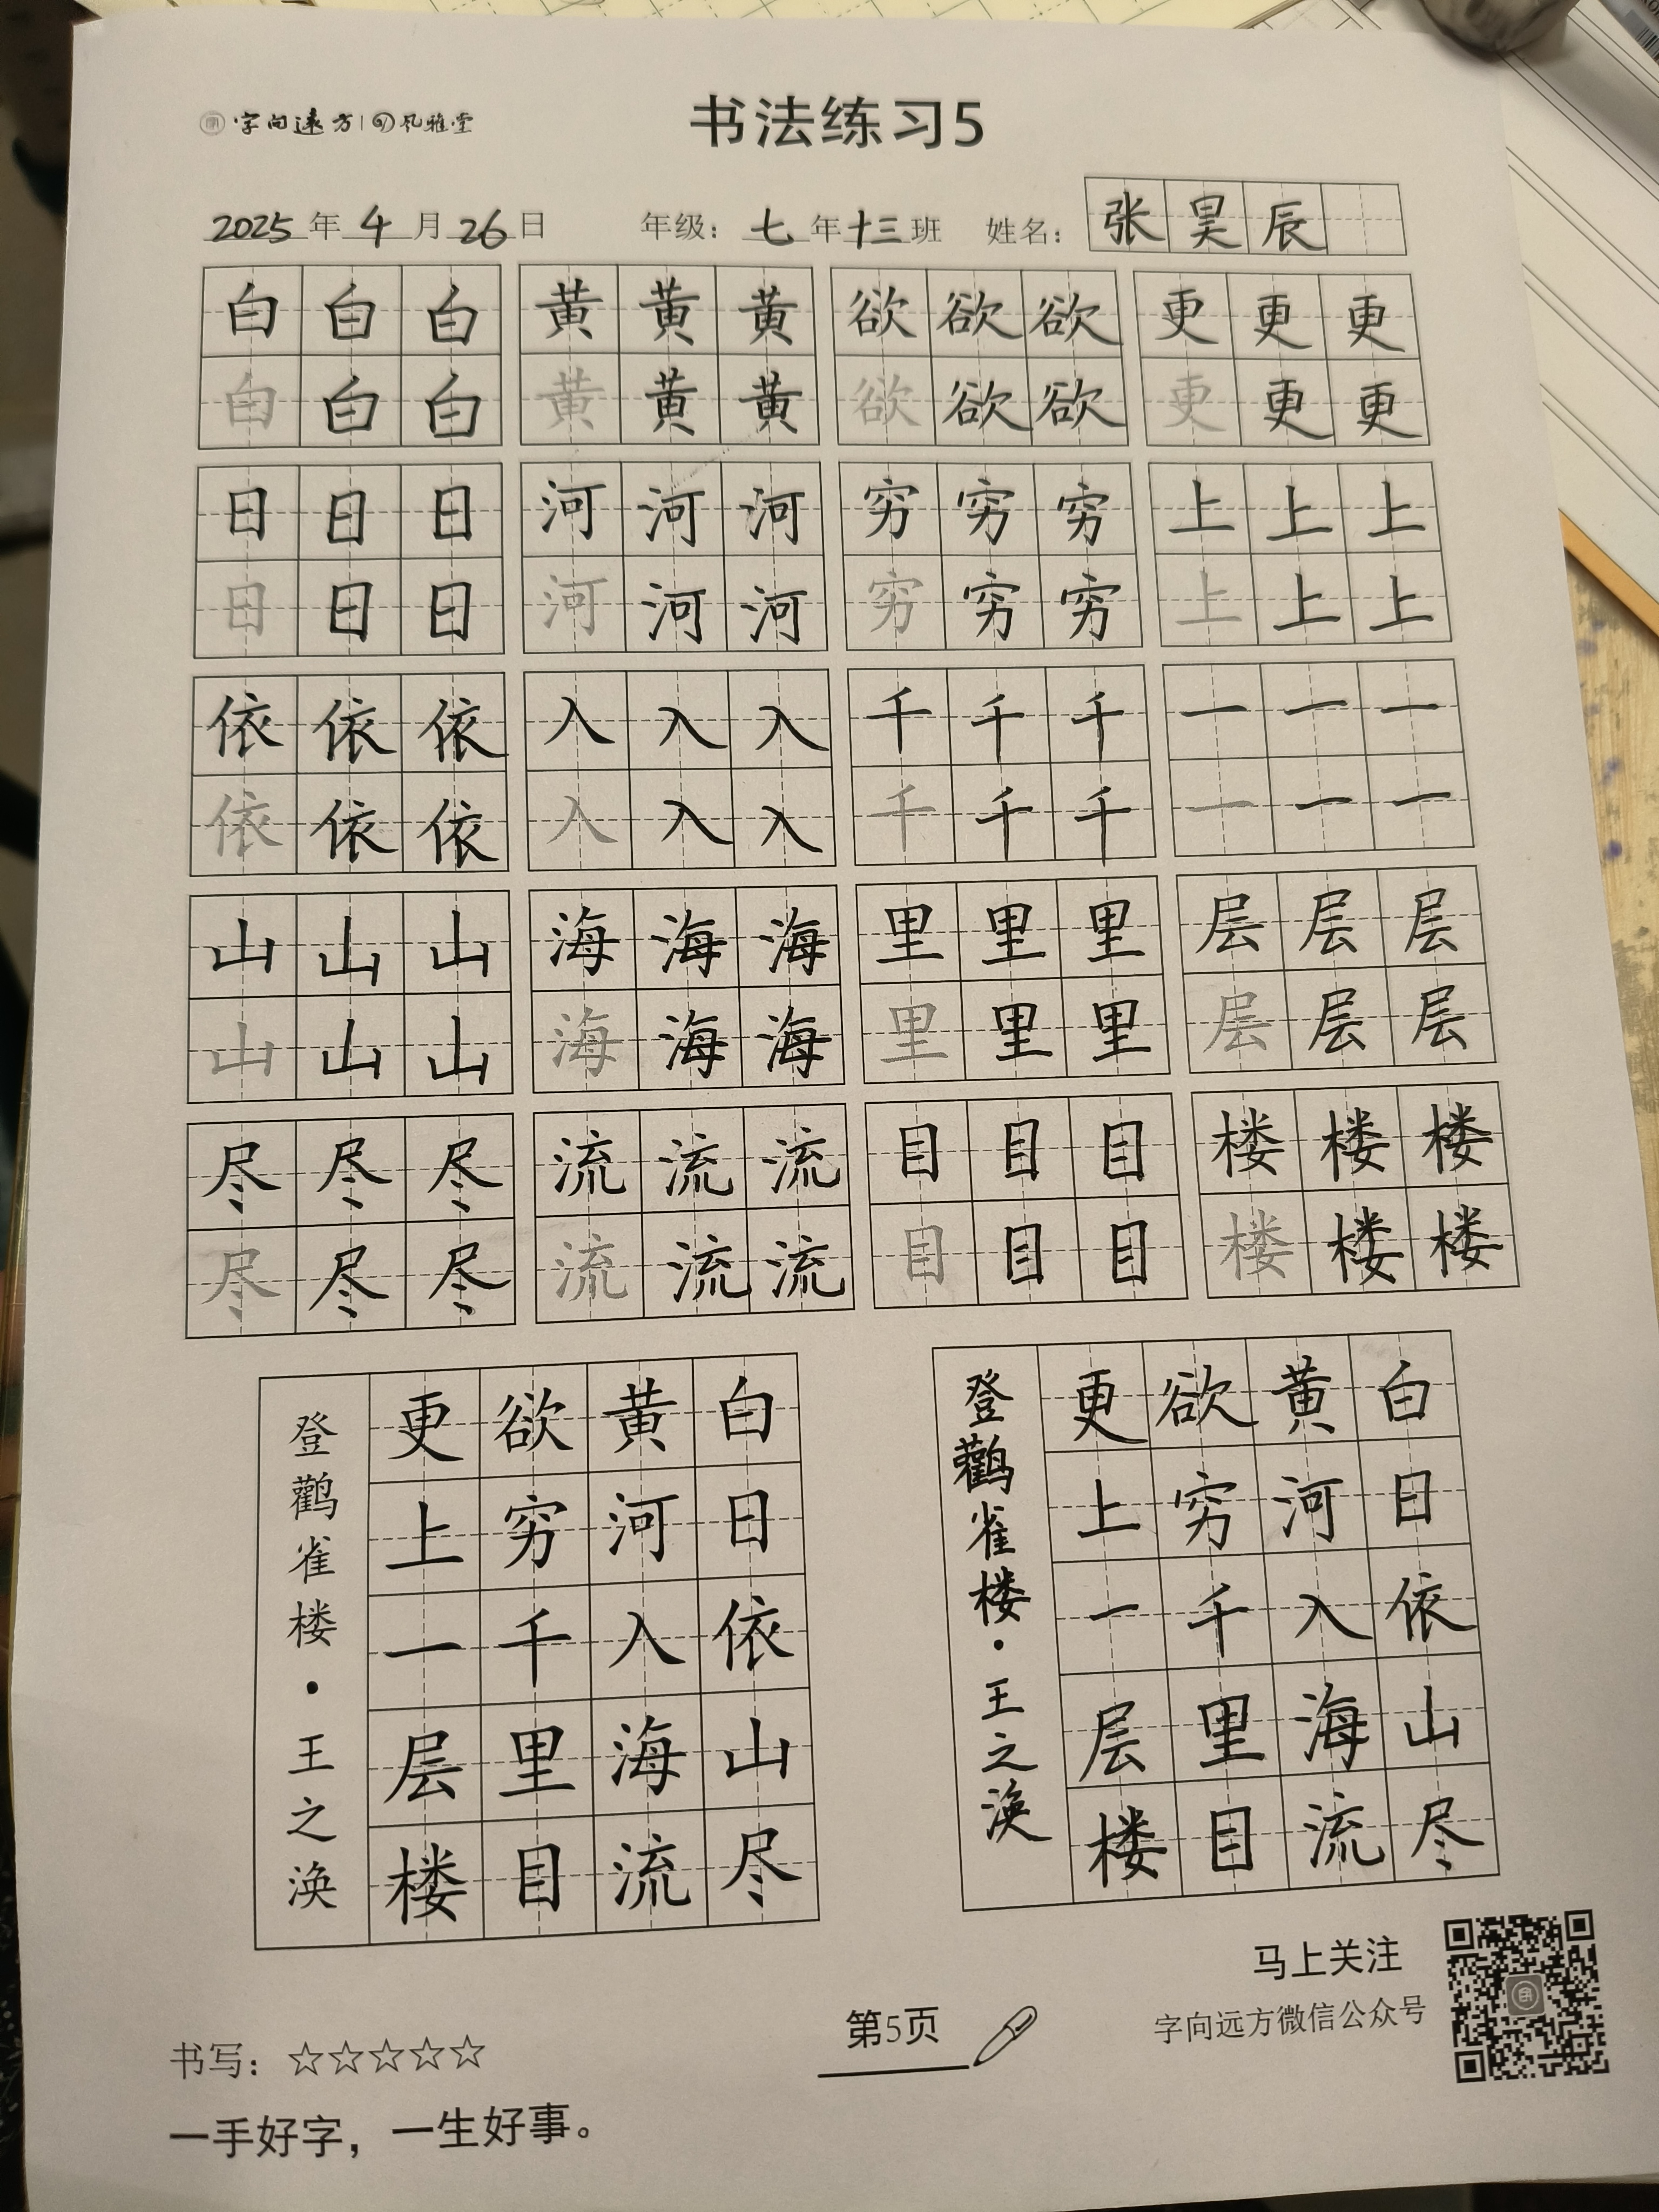 字向远方 风雅堂
书法练习5
2025年4月26日 年级：七年十三班 姓名：张昊辰
白白白 黄黄黄 欲欲欲 更更更
白白白 黄黄黄 欲欲欲 更更更
日日日 河河河 穷穷穷 上上上
日日日 河河河 穷穷穷 上上上
依依依 入入入 千千千 一一一
依依依 入入入 千千千 一一一
山山山 海海海 里里里 层层层
山山山 海海海 里里里 层层层
尽尽尽 流流流 目目目 楼楼楼
尽尽尽 流流流 目目目 楼楼楼
白日依山尽
黄河入海流
欲穷千里目
更上一层楼
登鹳雀楼·王之涣
白日依山尽
黄河入海流
欲穷千里目
更上一层楼
登鹳雀楼·王之涣
马上关注
字向远方微信公众号
第5页
书写：☆☆☆☆☆
一手好字，一生好事。